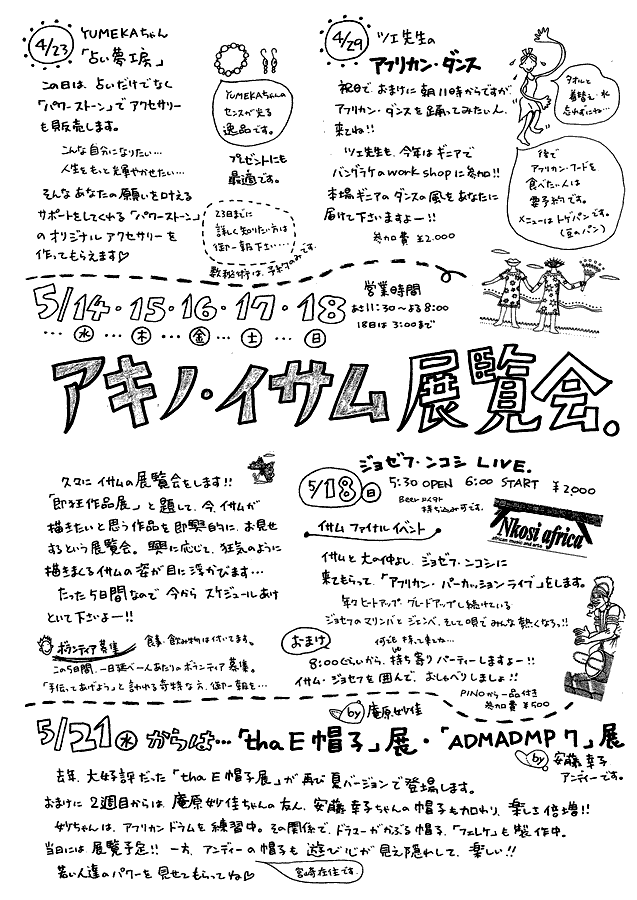 4/23
YUMEKAちゃん
「占い夢工房」
この日は、占いだけでなく
「パワーストーン」でアクセサリー
も販売します。
こんな自分になりたい…
人生をもっと輝やかせたい…
そんなあなたの願いを叶える
サポートをしてくれる「パワーストーン」
のオリジナルアクセサリーを
作ってもらえます♡
YUMEKAちゃんの
センスが光る
逸品です。
プレゼントにも
最適です。
23日までに
詳しく知りたい方は
御一報下さい……
4/29
ツェ先生の
アフリカン・ダンス
祝日で、おまけに朝11時からですが、
アフリカン・ダンスを踊ってみたい人、
来てね!!
ツェ先生も、今年はギニアで
バングラケのwork shopに参加!!
本場ギニアのダンスの風をあなたに
届けて下さいますよー!!
参加費 ¥2.000
タオルと
着替え・水
忘れずにね…
後で
アフリカン・フードを
食べたい人は
要予約です。
メニューはトゲパンです。
(豆のパン)
5/14・15・16・17・18
…水…木…金…土…日
営業時間
あさ11:30〜よる8:00
18日は3:00まで
アキノ・イサム展覧会。
久々にイサムの展覧会をします!!
「即狂作品展」と題して、今、イサムが
描きたいと思う作品を即興的に、お見せ
するという展覧会。興に応じて、狂気のように
描きまくるイサムの姿が目に浮かびます…
たった5日間なので今からスケジュールあけ
といて下さいよー!!
ボランティア募集
食事・飲み物は付いてます。
この5日間、一日延べ一人あたりのボランティア募集。
「手伝ってあげよう」と言われる奇特な方、御一報を…
ジョゼフ・ンコシ LIVE.
5/18日
5:30 OPEN 6:00 START ¥2,000
Beer以外
持ち込み可です。
イサム ファイナルイベント
Nkosi africa
african music and arts
イサムと大の仲よし、ジョゼフ・ンコシに
来てもらって、「アフリカン・パーカッションライブ」をします。
年々ヒートアップ・グレードアップし続けている
ジョセフのマリンバとジャンベ、そして唄でみんな熱くなろっ!!
おまけ
何でも持って来てね…
8:00ぐらいから、持ち寄りパーティーしますよー!!
イサム・ジョセフを囲んで、おしゃべりしましょ!!
PINOから一品付き
参加費 ¥500
5/21水からは…「tha E 帽子」展・「ADMADMP 7」展
by 庵原妙佳
by 安藤幸子
アンディーです。
去年、大好評だった「tha E 帽子展」が再び夏バージョンで登場します。
おまけに2週目からは、庵原妙佳ちゃんの友人、安藤幸子ちゃんの帽子も加わり、楽しさ倍増!!
妙ちゃんは、アフリカンドラムを練習中。その関係で、ドラマーがかぶる帽子、「フェレケ」も製作中。
当日には展覧予定!! 一方、アンディーの帽子も遊び心が見え隠れして、楽しい!!
若い人達のパワーを見せてもらってね♡
宮崎在住です。